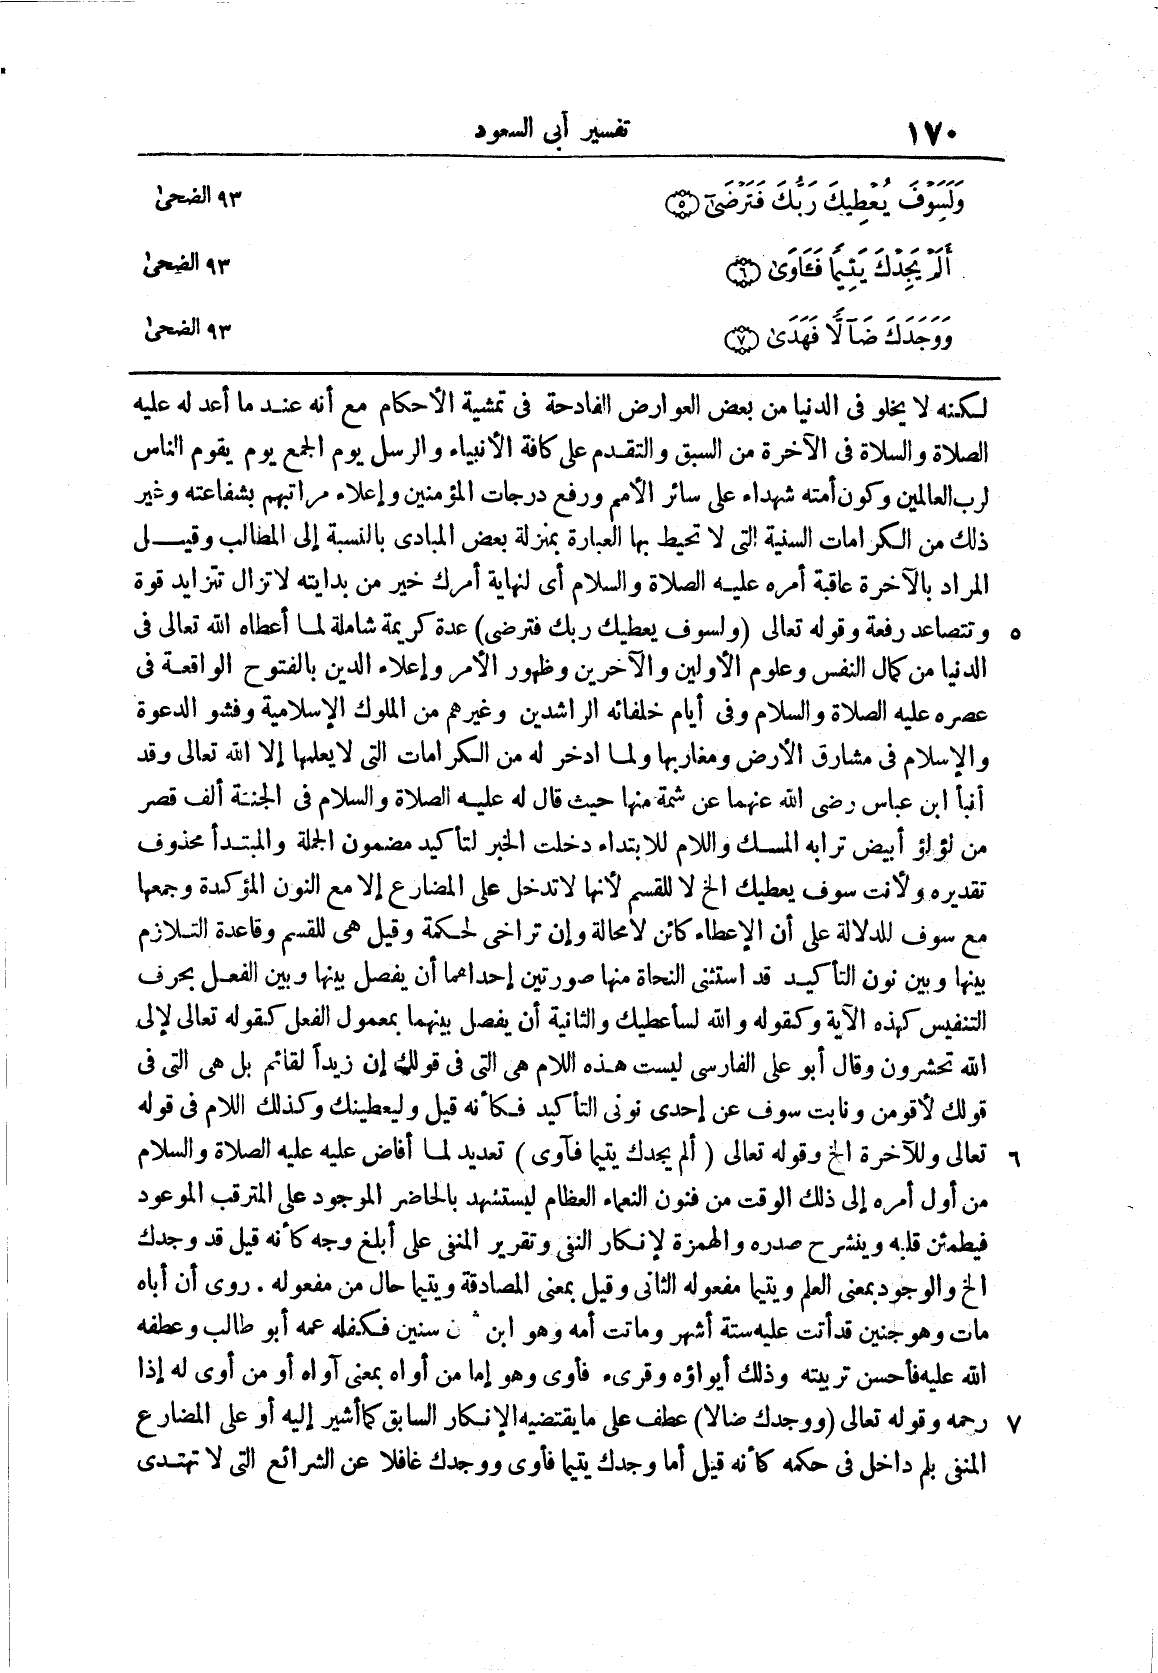 ١٧٠ تفسير أبى السعود
وَلَسَوْفَ يُعْطِيكَ رَبُّكَ فَتَرْضَىٰٓ ﴿٥﴾ ٩٣ الضحىٰ
أَلَمْ يَجِدْكَ يَتِيمًا فَـَٔاوَىٰ ﴿٦﴾ ٩٣ الضحىٰ
وَوَجَدَكَ ضَآلًّا فَهَدَىٰ ﴿٧﴾ ٩٣ الضحىٰ
لكنه لا يخلو فى الدنيا من بعض العوارض الفادحة فى تمشية الأحكام مع أنه عند ما أعد له عليه
الصلاة والسلاة فى الآخرة من السبق والتقدم على كافة الأنبياء والرسل يوم الجمع يوم يقوم الناس
لرب العالمين وكون أمته شهداء على سائر الأمم ورفع درجات المؤمنين وإعلاء مراتبهم بشفاعته وغير
ذلك من الكرامات السنية التى لا تحيط بها العبارة بمنزلة بعض المبادى بالنسبة إلى المطالب وقيل
المراد بالآخرة عاقبة أمره عليه الصلاة والسلام أى لنهاية أمرك خير من بدايته لا تزال تتزايد قوة
٥ وتتصاعد رفعة وقوله تعالى (ولسوف يعطيك ربك فترضى) عدة كريمة شاملة لما أعطاه الله تعالى فى
الدنيا من كمال النفس وعلوم الأولين والآخرين وظهور الأمر وإعلاء الدين بالفتوح الواقعة فى
عصره عليه الصلاة والسلام وفى أيام خلفائه الراشدين وغيرهم من الملوك الإسلامية وفشو الدعوة
والإسلام فى مشارق الأرض ومغاربها ولما ادخر له من الكرامات التى لا يعلمها إلا الله تعالى وقد
أنبأ ابن عباس رضى الله عنهما عن شمة منها حيث قال له عليه الصلاة والسلام فى الجنة ألف قصر
من لؤلؤ أبيض ترابه المسك واللام للابتداء دخلت الخبر لتأكيد مضمون الجملة والمبتدأ محذوف
تقديره ولأنت سوف يعطيك الخ لا للقسم لأنها لا تدخل على المضارع إلا مع النون المؤكدة وجمعها
مع سوف للدلالة على أن الإعطاء كائن لا محالة وإن تراخى لحكمة وقيل هى للقسم وقاعدة التلازم
بينها وبين نون التأكيد قد استثنى النحاة منها صورتين إحداهما أن يفصل بينها وبين الفعل بحرف
التنفيس كهذه الآية وكقوله والله لسأعطيك والثانية أن يفصل بينهما بمعمول الفعل كقوله تعالى لإلى
الله تحشرون وقال أبو على الفارسى ليست هذه اللام هى التى فى قولك إن زيداً لقائم بل هى التى فى
قولك لأقومن ونابت سوف عن إحدى نونى التأكيد فكأنه قيل وليعطينك وكذلك اللام فى قوله
٦ تعالى وللآخرة الخ وقوله تعالى (ألم يجدك يتيما فآوى) تعديد لما أفاض عليه عليه الصلاة والسلام
من أول أمره إلى ذلك الوقت من فنون النعماء العظام ليستشهد بالحاضر الموجود على المترقب الموعود
فيطمئن قلبه وينشرح صدره والهمزة لإنكار النفى وتقرير المنفى على أبلغ وجه كأنه قيل قد وجدك
الخ والوجود بمعنى العلم ويتيما مفعوله الثانى وقيل بمعنى المصادفة ويتيما حال من مفعوله . روى أن أباه
مات وهو جنين قد أتت عليه ستة أشهر وماتت أمه وهو ابن سنين فكفله عمه أبو طالب وعطفه
الله عليه فأحسن تربيته وذلك أيواؤه وقرىء فأوى وهو إما من أواه بمعنى آواه أو من أوى له إذا
٧ رحمه وقوله تعالى (ووجدك ضالا) عطف على ما يقتضيه الإنكار السابق كما أشير إليه أو على المضارع
المنفى بلم داخل فى حكمه كأنه قيل أما وجدك يتيما فأوى ووجدك غافلا عن الشرائع التى لا تهتدى